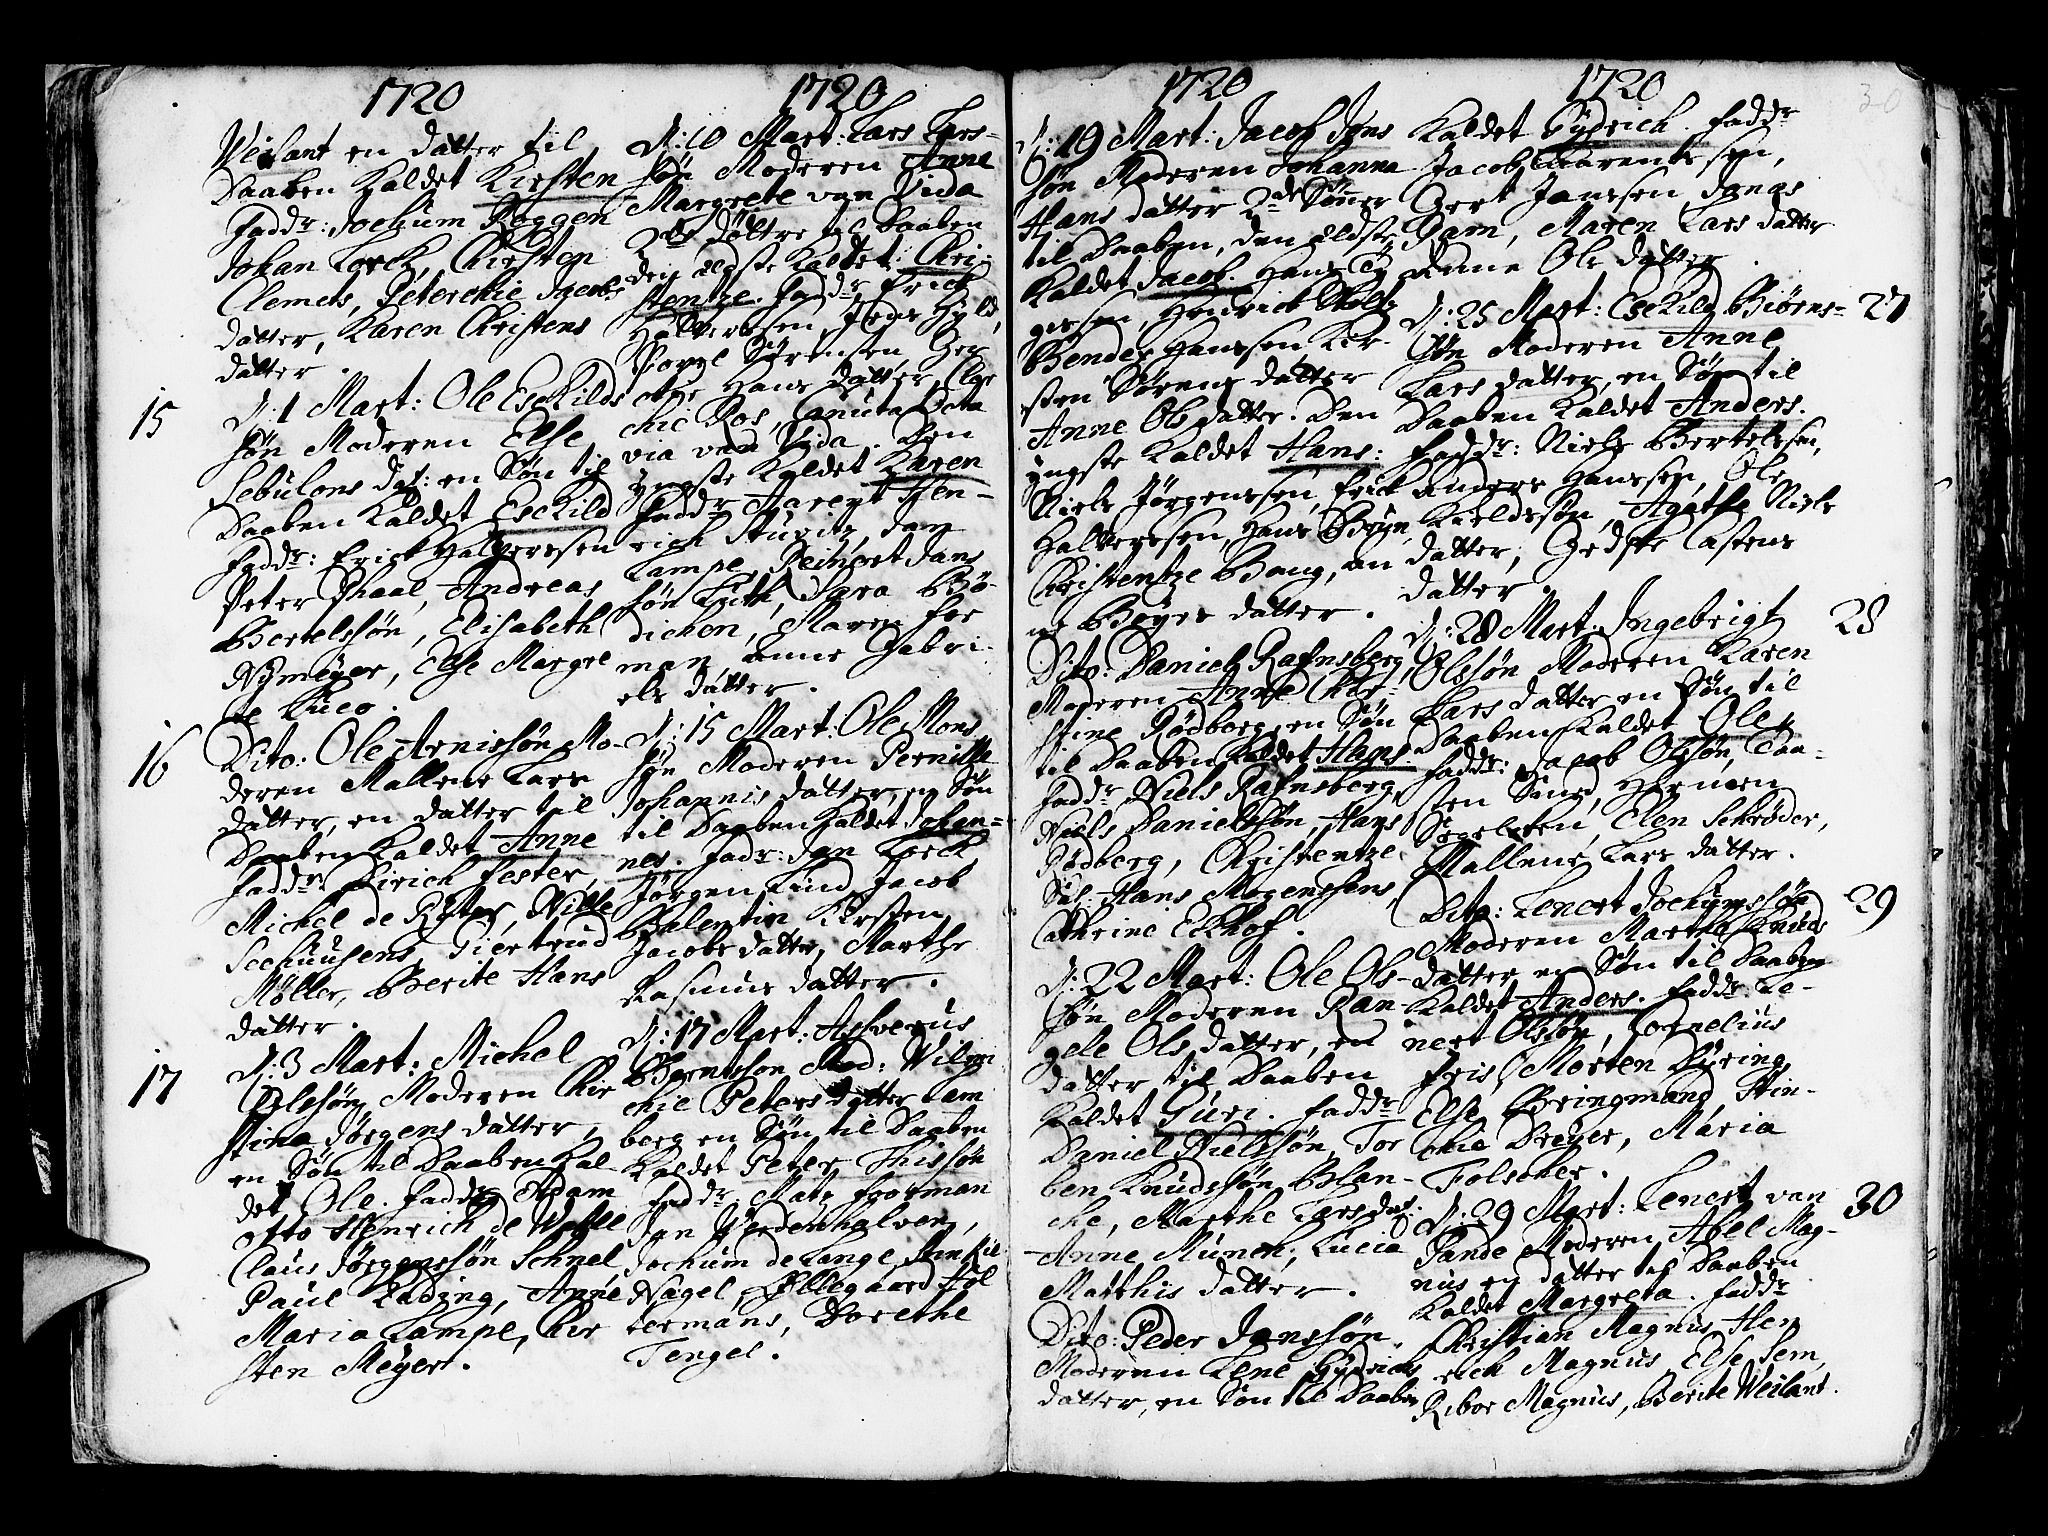 1720
Weilant en datter til
Daaben Kaldet Kirsten
Fadd:r Jochum Roggen
Johan Lorck, Kirsten
Clemets, Peterchie Jacobs
datter, Karen Christens
datter.
15
D: 1 Mart: Ole Eskilds
søn Moderen Else
Sebulons dat: en Søn til
Daaben Kaldet Eskild
Fadd:r Erick Halversen
Peter Phaal, Andreas
Bertelssøn, Elisabeth
Nÿmeÿer, Else Margre
te Lüco.
16
Dito: Ole Arnissøn Mo-
deren Mallene Lars
datter, en datter til
Daaben Kaldet Anne
Fadd:r Dirich Fester,
Michel de Rÿter, Wille
Seehuusens, Giertrud
Møller, Berite Hans
datter.
17
D: 3 Mart: Michel
Olssøn, Moderen Kir
stina Jørgens datter,
en Søn til Daaben Kal
det Ole. Fadd:r Adam
Otto Henrich de Wolle
Claus Jørgenssøn Schnel
Paul Lading, Anne
Maria Lampe, Kir
sten Meÿer.
1720
D: 10 Mart: Lars Lars-
søn Moderen Anne
Margrete von Vida
2de døttre til Daaben
den ælgste Kaldet Chri-
stentze. Fadd:r Erick
Halversen, Jens Hÿld,
Povel Sørensen, Ger
Hans datter,
chie Ros, Canuta Octa
via von Vida. Den
yngste Kaldet Karen
Fadd:r Harent Hen-
rich Sturitz, Jan
Lampe, Reinert Jans
søn Lüth, Sara Bø-
dichen, Maren For
man, Anne Gabri-
els datter.
D: 15 Mart: Ole Mons
søn Moderen Pernille
Johannis datter, en Søn
til Daaben Kaldet Johan-
nes. Fadr: Jan Lorck
Jørgen Lind, Jacob
Valentin, Kirsten
Jacobs datter, Marthe
Rasmus datter.
D: 17 Mart: Ashverus
Berntsson Mod: Wilem
chie Peters datter Lam
berg en Søn til Daaben
Kaldet Peter Thissøn
Fadd:r Mats Foorman
Jan Werdenhalven,
Jochum de Lange
Nagel, Ellegaard Hol
termans, Dorethe
Tengel.
1720
D: 19 Mart: Jacob Jens
søn Moderen Johanna
Hans datter 2de Sønner
til Daaben, den ældste
Kaldet Jacob. Hans Tÿ
gesen, Henrick Stoltz
Bendex Hanssen Kir-
sten Sørens datter
Anne Ols datter. Den
yngste Kaldet Hans:
Niels Jørgenssen, Erick
Halversen, Hans Beyn,
Christentze Bang, An
ne Beyers datter.
Dito: Daniel Rafnsberg,
Moderen Anne Chir-
stine Rødberg, en Søn
til Daaben Kaldet Hans.
Fadd:r Niels Rafnsberg,
Niels Danielssøn, Hans
Rødberg, Christentze
Sal: Hans Mogenssens,
Cathrine Eckhof.
D: 22 Mart: Ole Ols-
søn Moderen Ran-
gele Ols datter, en
datter til Daaben
Kaldet Guri. Fadd:r
Daniel Nielssøn, Tor
ben Knudssøn, Blan-
che, Marthe Larsdat:
Anne Münch, Lucia
Matthis datter.
Dito: Peder Janssøn.
Moderen Lene Gÿdrichs
datter, en Søn til Daaben
1720
30
Kaldet Gÿdrich. Fadd:r
Jacob Laurentssen,
Gert Janssen, Jonas
Dam, Maren Lars datter
Anne Ols datter.
27
D: 25 Mart: Eskild Biørns-
søn Moderen Anne
Lars datter, en Søn til
Daaben Kaldet Anders.
Fadd:r: Niels Bertelssen,
Anders Hanssen, Ole
Kieldssøn, Agathe Niels
datter, Gedske Castens
datter.
28
D: 28 Mart: Ingebrigt
Olssøn Moderen Karen
Lars datter en Søn til
Daaben Kaldet Ole
Fadd:r: Jacob Olssøn, Caa-
sten Smed, Harmen
Segelcken, Elen Schrøder,
Mallene Lars datter.
29
Dito: Lenert Jochumssøn
Moderen Martha Knuds
datter en Søn til Daaben
Kaldet Anders. Fadd:r Le-
nert Olssøn, Cornelius
Friis, Morten Düring,
Else Bringmand, Stin-
chie Dreÿer, Maria
Folscher.
30
D: 29 Mart: Lenert van
Pande Moderen Abel Mag-
nus en datter til Daaben
Kaldet Margreta. Fadd:r
Christian Magnus, Hen
rich Magnus, Else Sem,
Ribor Magnus, Berite Weilant.